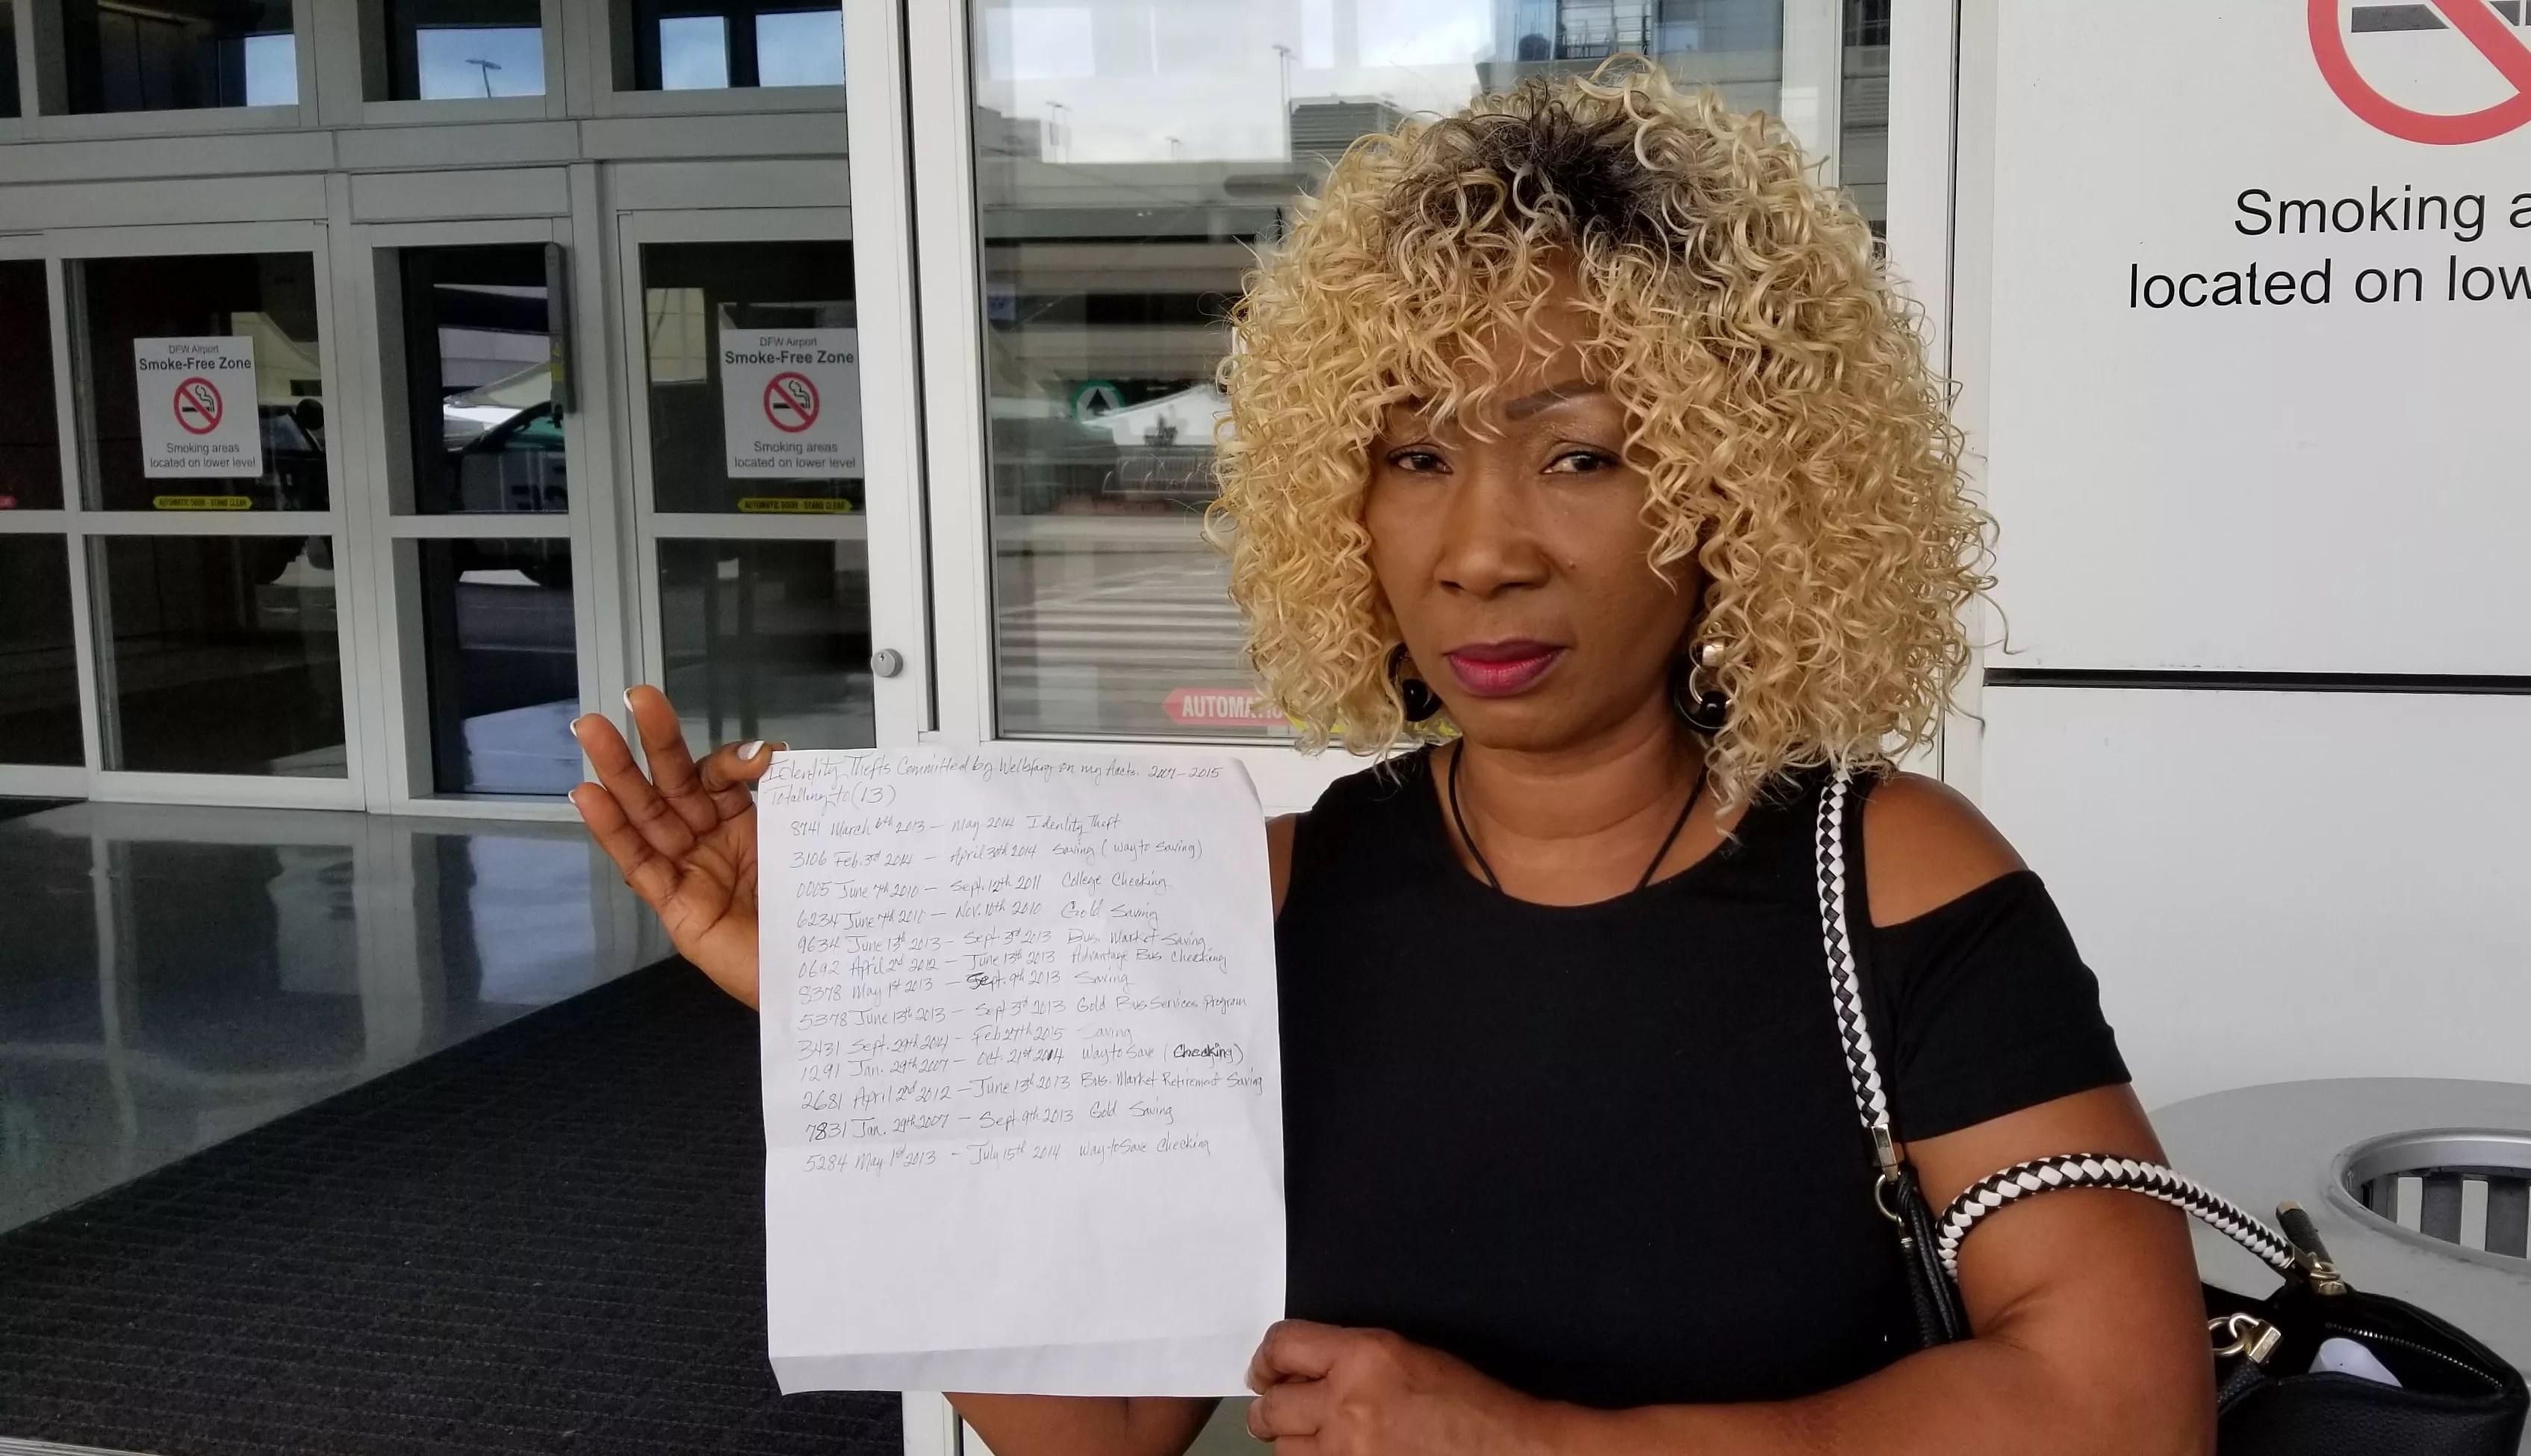 DFW Airport
Smoke-Free Zone
Smoking areas
located on lower level
AUTOMATIC DOOR - STAND CLEAR
DFW Airport
Smoke-Free Zone
Smoking areas
located on lower level
AUTOMATIC DOOR - STAND CLEAR
AUTOMATIC
Smoking a
located on low
Identity Thefts Committed by Wellsfargo on my Accts. 2007-2015
Totalling to (13)
8741 March 6th 2013 - May 2014 Identity Theft
3106 Feb. 3rd 2014 - April 30th 2014 Saving (Way to Saving)
0005 June 7th 2010 - Sept. 12th 2011 College Checking
6234 June 7th 2010 - Nov. 10th 2010 Gold Saving
9634 June 13th 2013 - Sept 3rd 2013 Bus. Market Saving
0692 April 2nd 2012 - June 13th 2013 Advantage Bus Checking
8378 May 1st 2013 - Sept. 9th 2013 Saving
5378 June 13th 2013 - Sept 3rd 2013 Gold Bus Services Program
3431 Sept. 29th 2014 - Feb 27th 2015 Saving
1291 Jan. 29th 2007 - Oct. 21st 2014 Way to Save (Checking)
2681 April 2nd 2012 - June 13th 2013 Bus. Market Retirement Saving
7831 Jan. 29th 2007 - Sept. 9th 2013 Gold Saving
5284 May 1st 2013 - July 15th 2014 Way-to-Save Checking